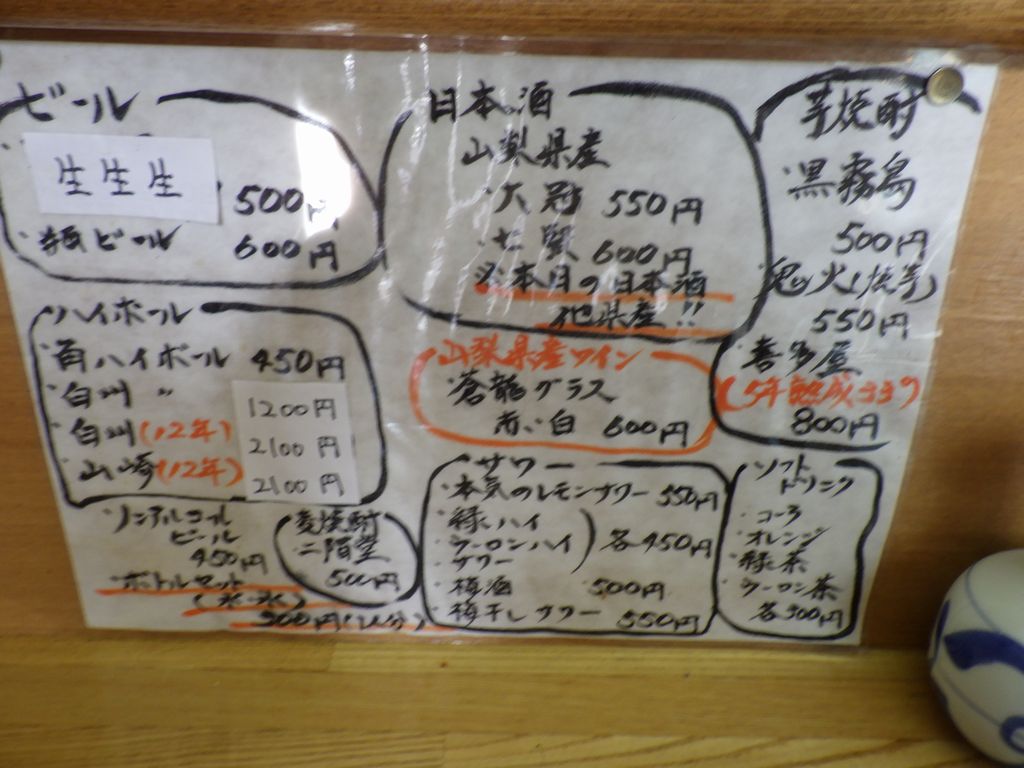 ビール
生生生
500円
・瓶ビール 600円
ハイボール
・角ハイボール 450円
・白州 〃 1200円
・白州(12年) 2100円
・山崎(12年) 2100円
ノンアルコール
ビール
450円
・ボトルセット
(氷・水)
300円(1人分)
麦焼酎
・二階堂
500円
日本酒
山梨県産
・大冠 550円
・七賢 600円
※本日の日本酒
他県産!!
山梨県産ワイン
・蒼龍グラス
赤・白 600円
サワー
・本気のレモンサワー 550円
・緑ハイ
・ウーロンハイ 各450円
・サワー
・梅酒 500円
・梅干しサワー 550円
芋焼酎
・黒霧島
500円
・鬼火(焼芋)
550円
・喜多屋
800円
ソフト
ドリンク
・コーラ
・オレンジ
・緑茶
・ウーロン茶
各300円